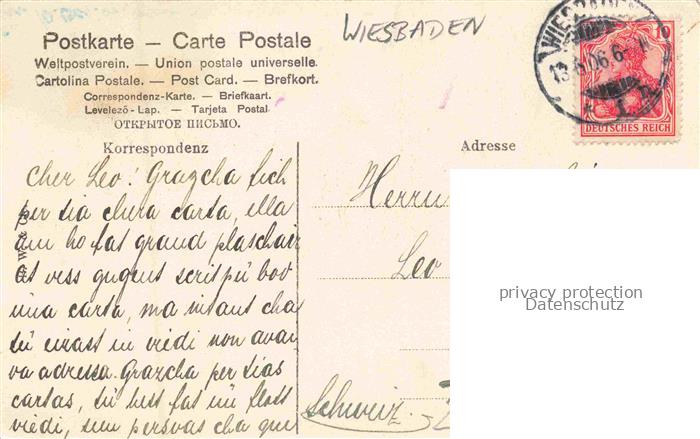 WIESBADEN
WIESBADEN
13.6.06.6-
10
DEUTSCHES REICH
Postkarte — Carte Postale
Weltpostverein. — Union postale universelle.
Cartolina Postale. — Post Card. — Brefkort.
Correspondenz-Karte. — Briefkaart.
Levelező-Lap. — Tarjeta Postal
ОТКРЫТОЕ ПИСЬМО.
Korrespondenz
Adresse
Cher Leo! Grazcha fich
per tia chera carta, ella
am ho fat grand plaschair
vess gugent scrit pü bod
üna carta, ma intant cha
tü eirast in viedi non avai
va adressa. Grazcha per tias
cartas, tü hest fat ün flott
viedi, sun persvas cha que
Herrn
Leo
Schweiz.
privacy protection
Datenschutz